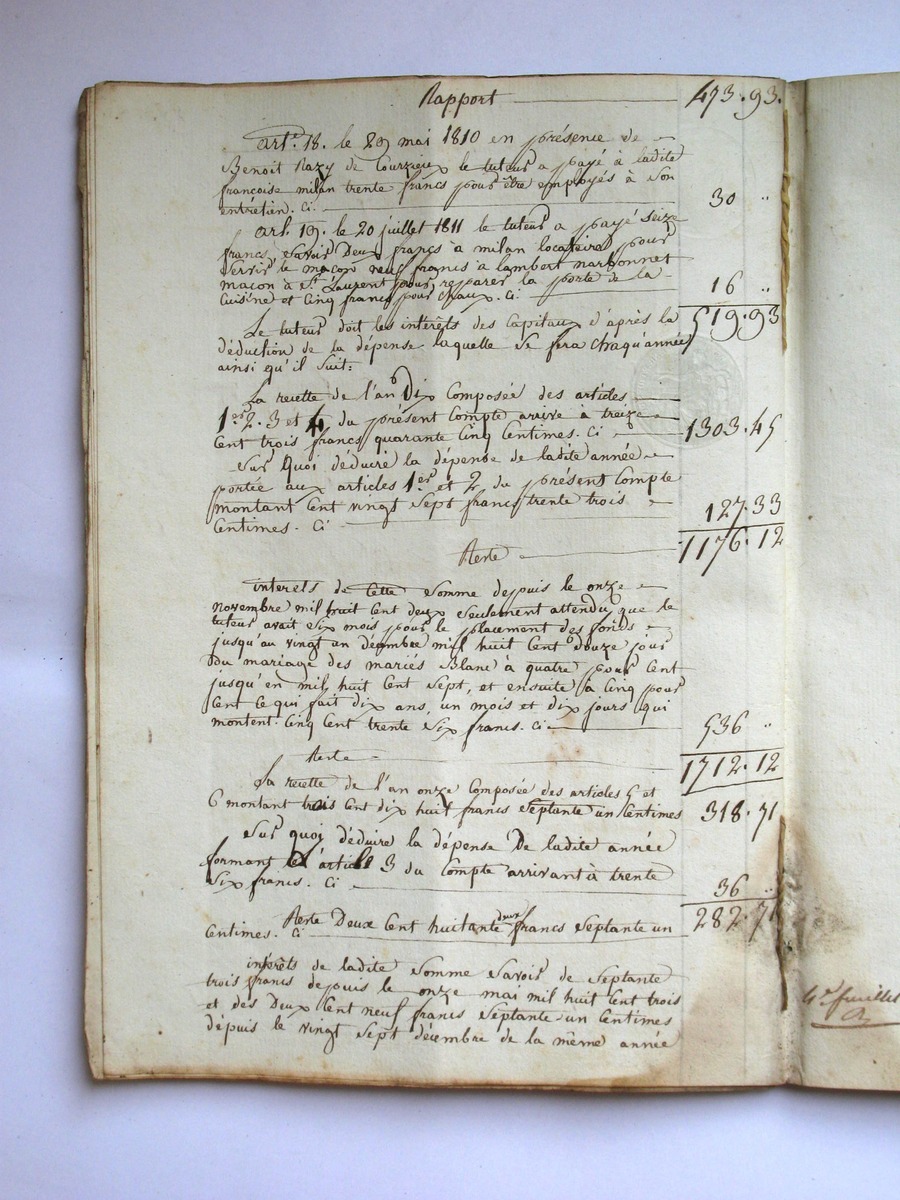 Rapport 473.93.
art.e 18. le 29 mai 1810 en présence de
Benoit Razy de Courzieux le tuteur a payé à ladite
françoise milan trente francs pour être employés à son
entretien. ci. 30 "
art. 19. le 20 juillet 1811 le tuteur a payé seize
francs, savoir Deux francs à milan locataire pour
servir le maçon neuf francs à lambert narbonnet
maçon à St. Laurent pour reparer la porte de la
Cuisine et Cinq francs pour chaux. ci. 16 "
519.93
Le tuteur doit les intérêts des Capitaux d'après la
déduction de la dépense laquelle se fera chaqu'année
ainsi qu'il suit:
La recette de l'an Dix Composée des articles
1er 2. 3 et 4 du présent Compte arrive à treize
Cent trois francs quarante Cinq Centimes. Ci 1303.45
Sur quoi déduire la dépense de ladite année
portée aux articles 1er et 2 du présent Compte
montant Cent vingt Sept francs trente trois
Centimes. Ci 127.33
Reste 1176.12
interets de Cette somme depuis le onze
novembre mil huit Cent deux seulement attendu que le
tuteur avait six mois pour le placement des fonds
jusqu'au vingt un décembre mil huit Cent douze jour
du mariage des mariés Blanc à quatre pour Cent
jusqu'en mil huit Cent Sept, et ensuite à Cinq pour
Cent ce qui fait dix ans, un mois et dix jours qui
montent. Cinq Cent trente Six francs. Ci 536 "
Reste 1712.12
La recette de l'an onze Composée des articles 5 et
6 montant trois Cent dix huit francs Septante un Centimes 318.71
Sur quoi déduire la dépense De ladite année
formant l'article 3 du Compte arrivant à trente
Six francs. Ci 36 "
Reste Deux Cent huitante deux francs Septante un
Centimes. Ci 282.71
intérêts de ladite somme savoir de Septante
trois francs depuis le onze mai mil huit Cent trois
et des Deux Cent neuf francs Septante un Centimes
depuis le vingt Sept décembre de la même année
4e. feuillet